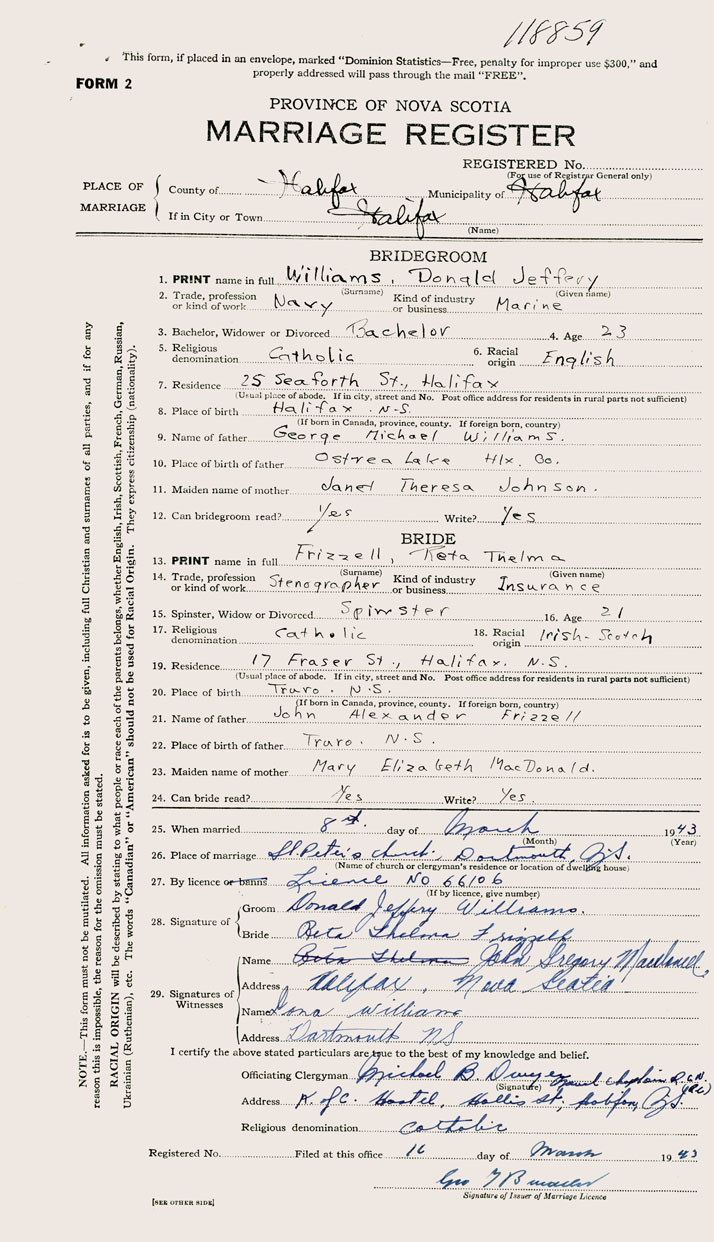 118859
This form, if placed in an envelope, marked "Dominion Statistics—Free, penalty for improper use $300," and
properly addressed will pass through the mail "FREE".
FORM 2
PROVINCE OF NOVA SCOTIA
MARRIAGE REGISTER
REGISTERED No.
(For use of Registrar General only)
PLACE OF MARRIAGE
County of Halifax Municipality of Halifax
If in City or Town Halifax
(Name)
BRIDEGROOM
1. PRINT name in full Williams, Donald Jeffery
(Surname) (Given name)
2. Trade, profession or kind of work Navy Kind of industry or business Marine
3. Bachelor, Widower or Divorced Bachelor 4. Age 23
5. Religious denomination Catholic 6. Racial origin English
7. Residence 25 Seaforth St., Halifax
(Usual place of abode. If in city, street and No. Post office address for residents in rural parts not sufficient)
8. Place of birth Halifax. N.S.
(If born in Canada, province, county. If foreign born, country)
9. Name of father George Michael Williams.
10. Place of birth of father Ostrea Lake Hfx. Co.
11. Maiden name of mother Janet Theresa Johnson.
12. Can bridegroom read? Yes Write? Yes
BRIDE
13. PRINT name in full Frizzell, Reta Thelma
(Surname) (Given name)
14. Trade, profession or kind of work Stenographer Kind of industry or business Insurance
15. Spinster, Widow or Divorced Spinster 16. Age 21
17. Religious denomination Catholic 18. Racial origin Irish-Scotch
19. Residence 17 Fraser St., Halifax. N.S.
(Usual place of abode. If in city, street and No. Post office address for residents in rural parts not sufficient)
20. Place of birth Truro. N.S.
(If born in Canada, province, county. If foreign born, country)
21. Name of father John Alexander Frizzell
22. Place of birth of father Truro. N.S.
23. Maiden name of mother Mary Elizabeth MacDonald.
24. Can bride read? Yes Write? Yes.
25. When married 8 day of March 1943
(Month) (Year)
26. Place of marriage St. Peter's church, Dartmouth, N.S.
(Name of church or clergyman's residence or location of dwelling house)
27. By licence or banns Licence No 66106
(If by licence, give number)
28. Signature of
Groom Donald Jeffery Williams.
Bride Reta Thelma Frizzell
29. Signatures of Witnesses
Name Reta Thelma John Gregory
Address Halifax, Nova Scotia
Name Iona Williams
Address Dartmouth NS
I certify the above stated particulars are true to the best of my knowledge and belief.
Officiating Clergyman Michael B Dwyer Naval Chaplain R.C.N.
(Signature)
Address K. of C. Hostel, Hollis St., Halifax, N.S.
Religious denomination Catholic
Registered No. Filed at this office 16 day of March 1943
Geo
Signature of Issuer of Marriage Licence
[SEE OTHER SIDE]
NOTE.—This form must not be mutilated. All information asked for is to be given, including full Christian and surnames of all parties, and if for any
reason this is impossible, the reason for the omission must be stated.
RACIAL ORIGIN will be described by stating to what people or race each of the parents belongs, whether English, Irish, Scottish, French, German, Russian,
Ukrainian (Ruthenian), etc. The words "Canadian" or "American" should not be used for Racial Origin. They express citizenship (nationality).